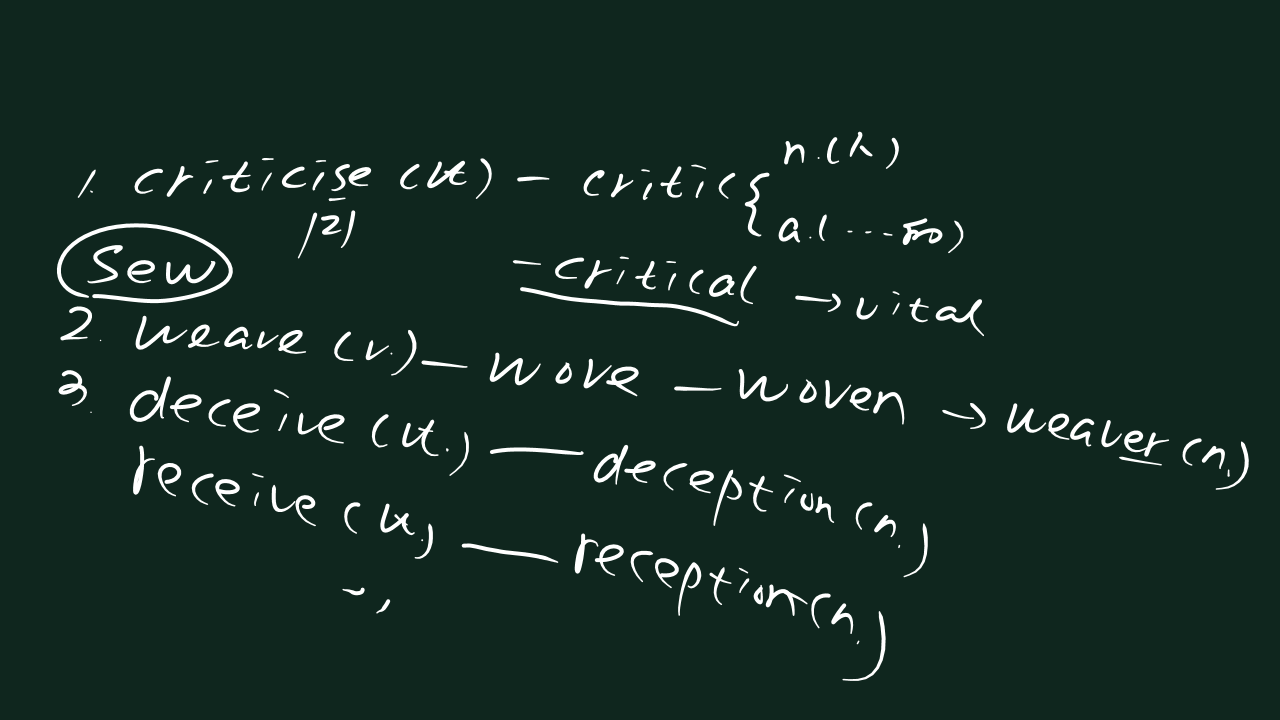 1. criticise (vt) - critic { n.(人)
/z/ a.(...的)
sew - critical → vital
2. weave (v.) — wove — woven → weaver (n.)
3. deceive (vt.) — deception (n.)
receive (vt.) — reception (n.)